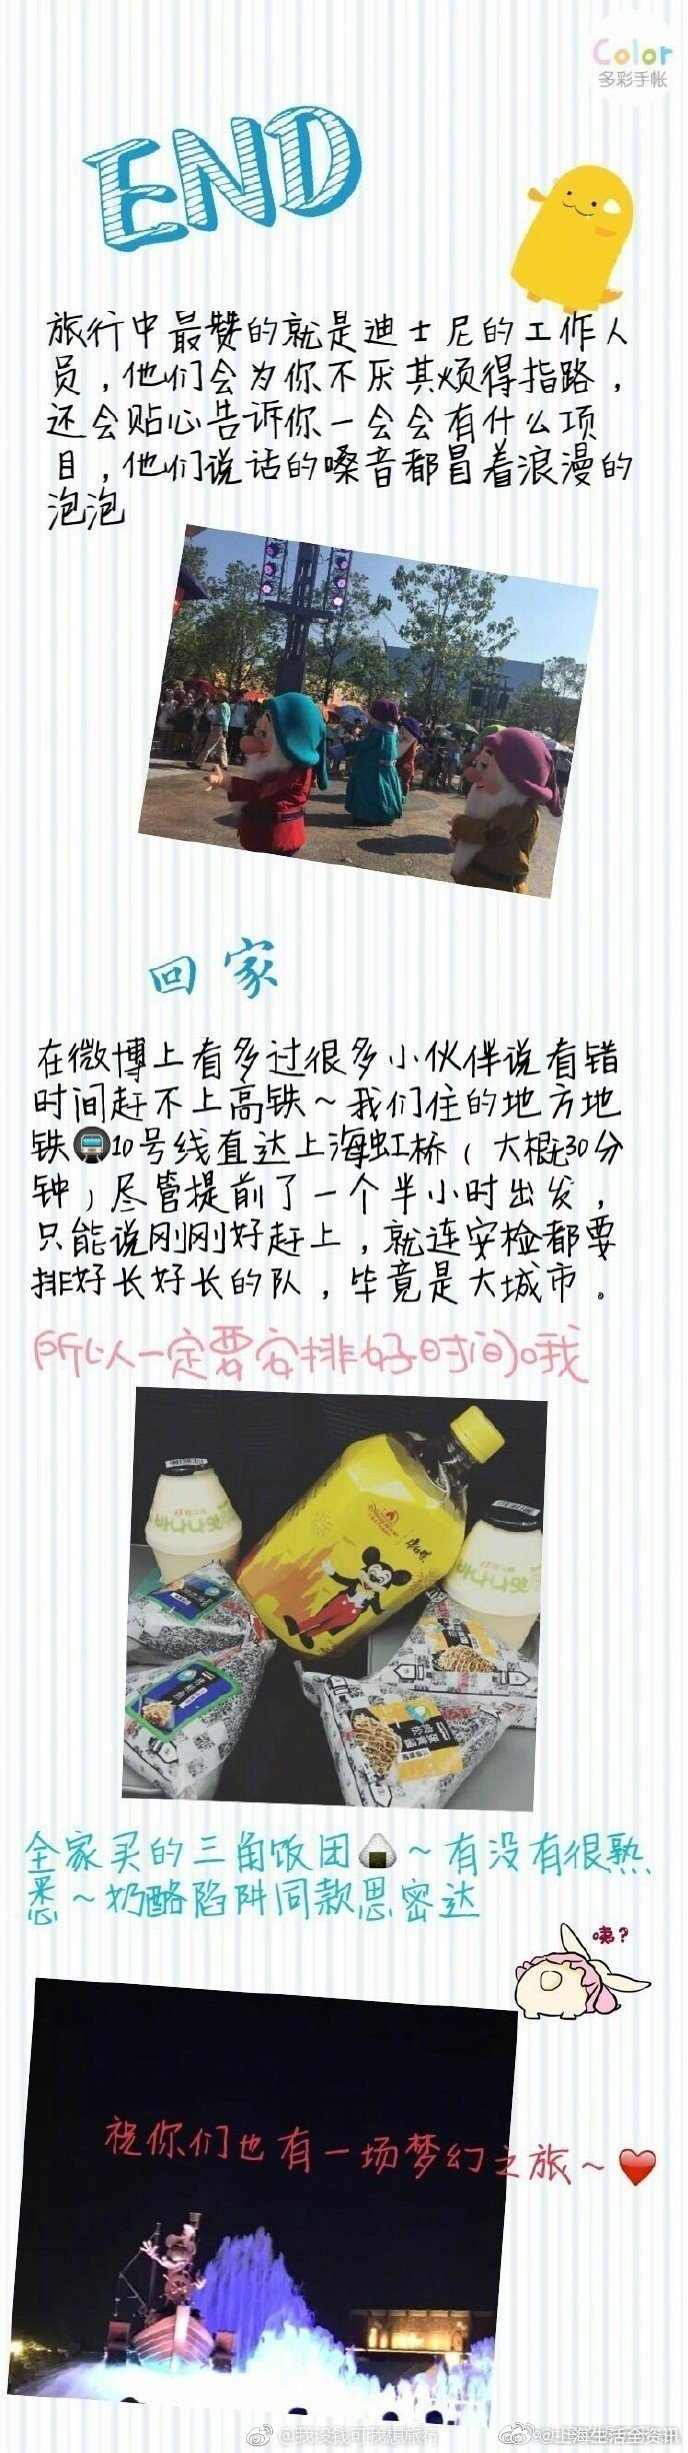 Color
多彩手帐
END
旅行中最赞的就是迪士尼的工作人
员，他们会为你不厌其烦得指路，
还会贴心告诉你一会会有什么项
目，他们说话的嗓音都冒着浪漫的
泡泡
回家
在微博上看多过很多小伙伴说看错
时间赶不上高铁～我们住的地方地
铁🚇10号线直达上海虹桥（大概30分
钟）尽管提前了一个半小时出发，
只能说刚刚好赶上，就连安检都要
排好长好长的队，毕竟是大城市。
所以一定要安排好时间哦
바나나맛
바나나맛
全家买的三角饭团🍙～有没有很熟
悉～奶酪陷阱同款思密达
咦?
祝你们也有一场梦幻之旅～❤
@我没钱可我想旅行
@上海生活全资讯